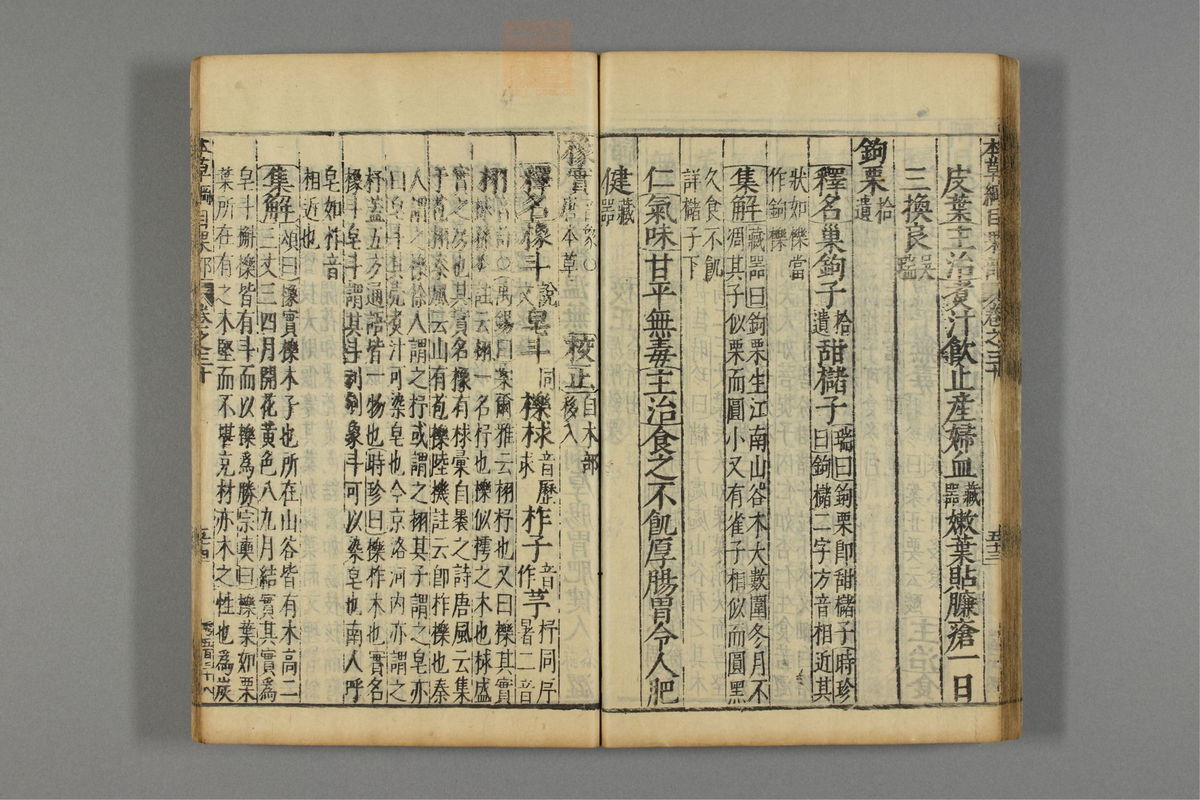 本草綱目果部 卷之三十 五十三
皮葉主治煮汁飲止産婦血藏器嫩葉貼臁瘡一日
三換良吴瑞
鉤栗拾遺
釋名巢鉤子拾遺甜櫧子瑞曰鉤栗即甜櫧子時珍曰鉤櫧二字方音相近其
狀如櫟當作鉤櫟
集解藏器曰鉤栗生江南山谷木大數圍冬月不凋其子似栗而圓小又有雀子相似而圓黑
久食不飢詳櫧子下
仁氣味甘平無毒主治食之不飢厚腸胃令人肥
健藏器
橡實音象○唐本草 校正自木部移入
釋名橡斗說文皂斗同上櫟梂音歷求柞子音作芧杼同序暑二音
栩 禹錫曰案爾雅云栩杼也又曰櫟其實梂 註云栩一名杼也櫟似樗之木也梂盛
實之房也其實名橡有梂彙自裹之詩唐風云集
于苞栩秦風云山有苞櫟陸機註云即柞櫟也秦
人謂之櫟徐人謂之杼或謂之栩其子謂之皂亦
曰皂斗其殻煮汁可染皂也今京洛河内亦謂之
杼蓋五方通語皆一物也時珍曰櫟柞木也實名
橡斗皂斗謂其斗刓剜象斗可以染皂也南人呼
皂如柞音相近也
集解頌曰橡實櫟木子也所在山谷皆有木高二三丈三四月開花黃色八九月結實其實爲
皂斗槲櫟皆有斗而以櫟爲勝宗奭曰櫟葉如栗
葉所在有之木堅而不堪充材亦木之性也爲炭
本草綱目果部 卷之三十 五十四